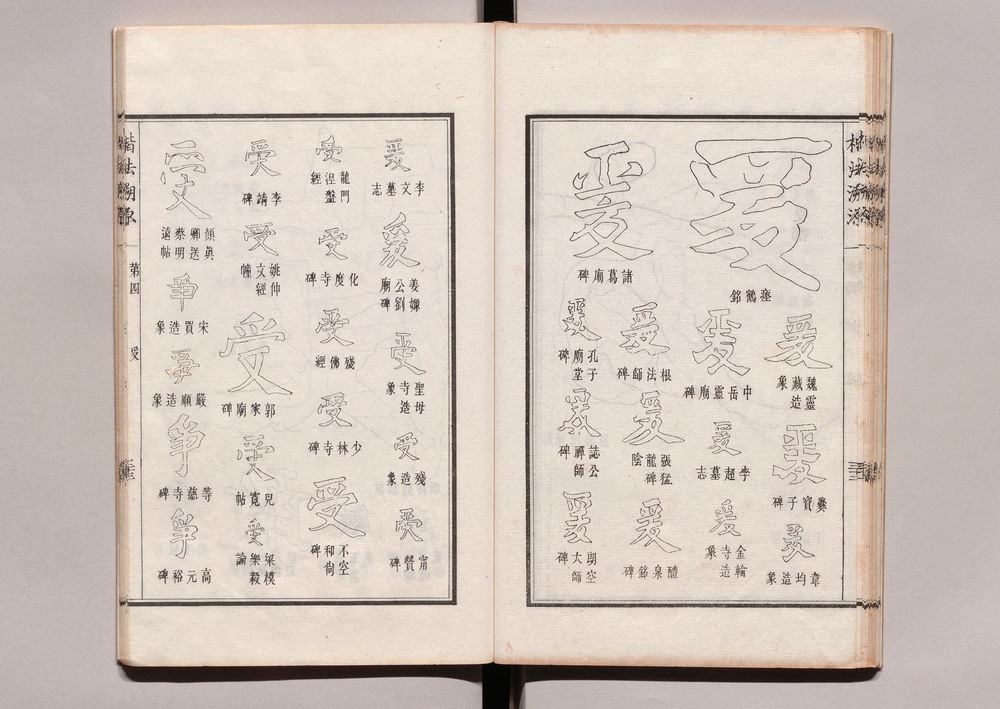 楷法溯源
爰
瘞鶴銘
爰
魏靈藏造象
爰
爨寶子碑
爰
韋均造象
爰
中岳靈廟碑
爰
李超墓志
爰
金輪寺造象
爰
諸葛廟碑
爰
根法師碑
爰
張猛龍碑陰
爰
醴泉銘
爰
孔子廟堂碑
爰
誌公禪師
爰
朗空大師碑
爰
李文墓志
爰
姜嫄公劉廟碑
受
聖母寺造象
受
殘造象
受
甯贊碑
受
龍門涅盤經
受
化度寺碑
受
殘佛經
受
少林寺碑
受
不空和尚碑
受
李靖碑
受
姚仲文經幢
受
郭家廟碑
受
兒寬帖
受
梁模樂毅論
受
顏眞卿送蔡明遠帖
爭
宋買造象
爭
嚴順造象
爭
等慈寺碑
爭
高元裕碑
楷法溯源
第四
受